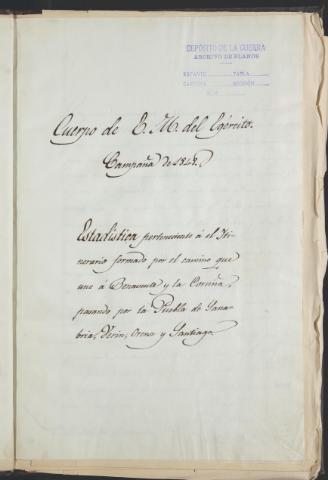 DEPÓSITO DE LA GUERRA
ARCHIVO DE PLANOS
ESTANTE TABLA
CARPETA SECCIÓN
Cuerpo de E. M. del Egército.
Campaña de
Estadística perteneciente á el Iti-
nerario formado por el camino que
une á Benavente y la Coruña,
pasando por la Puebla de Sana-
bria, Verin, Orense y Santiago.